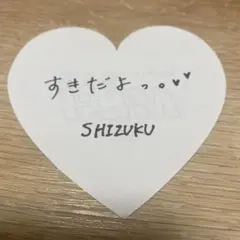 すきだよっ。♥♥
SHIZUKU